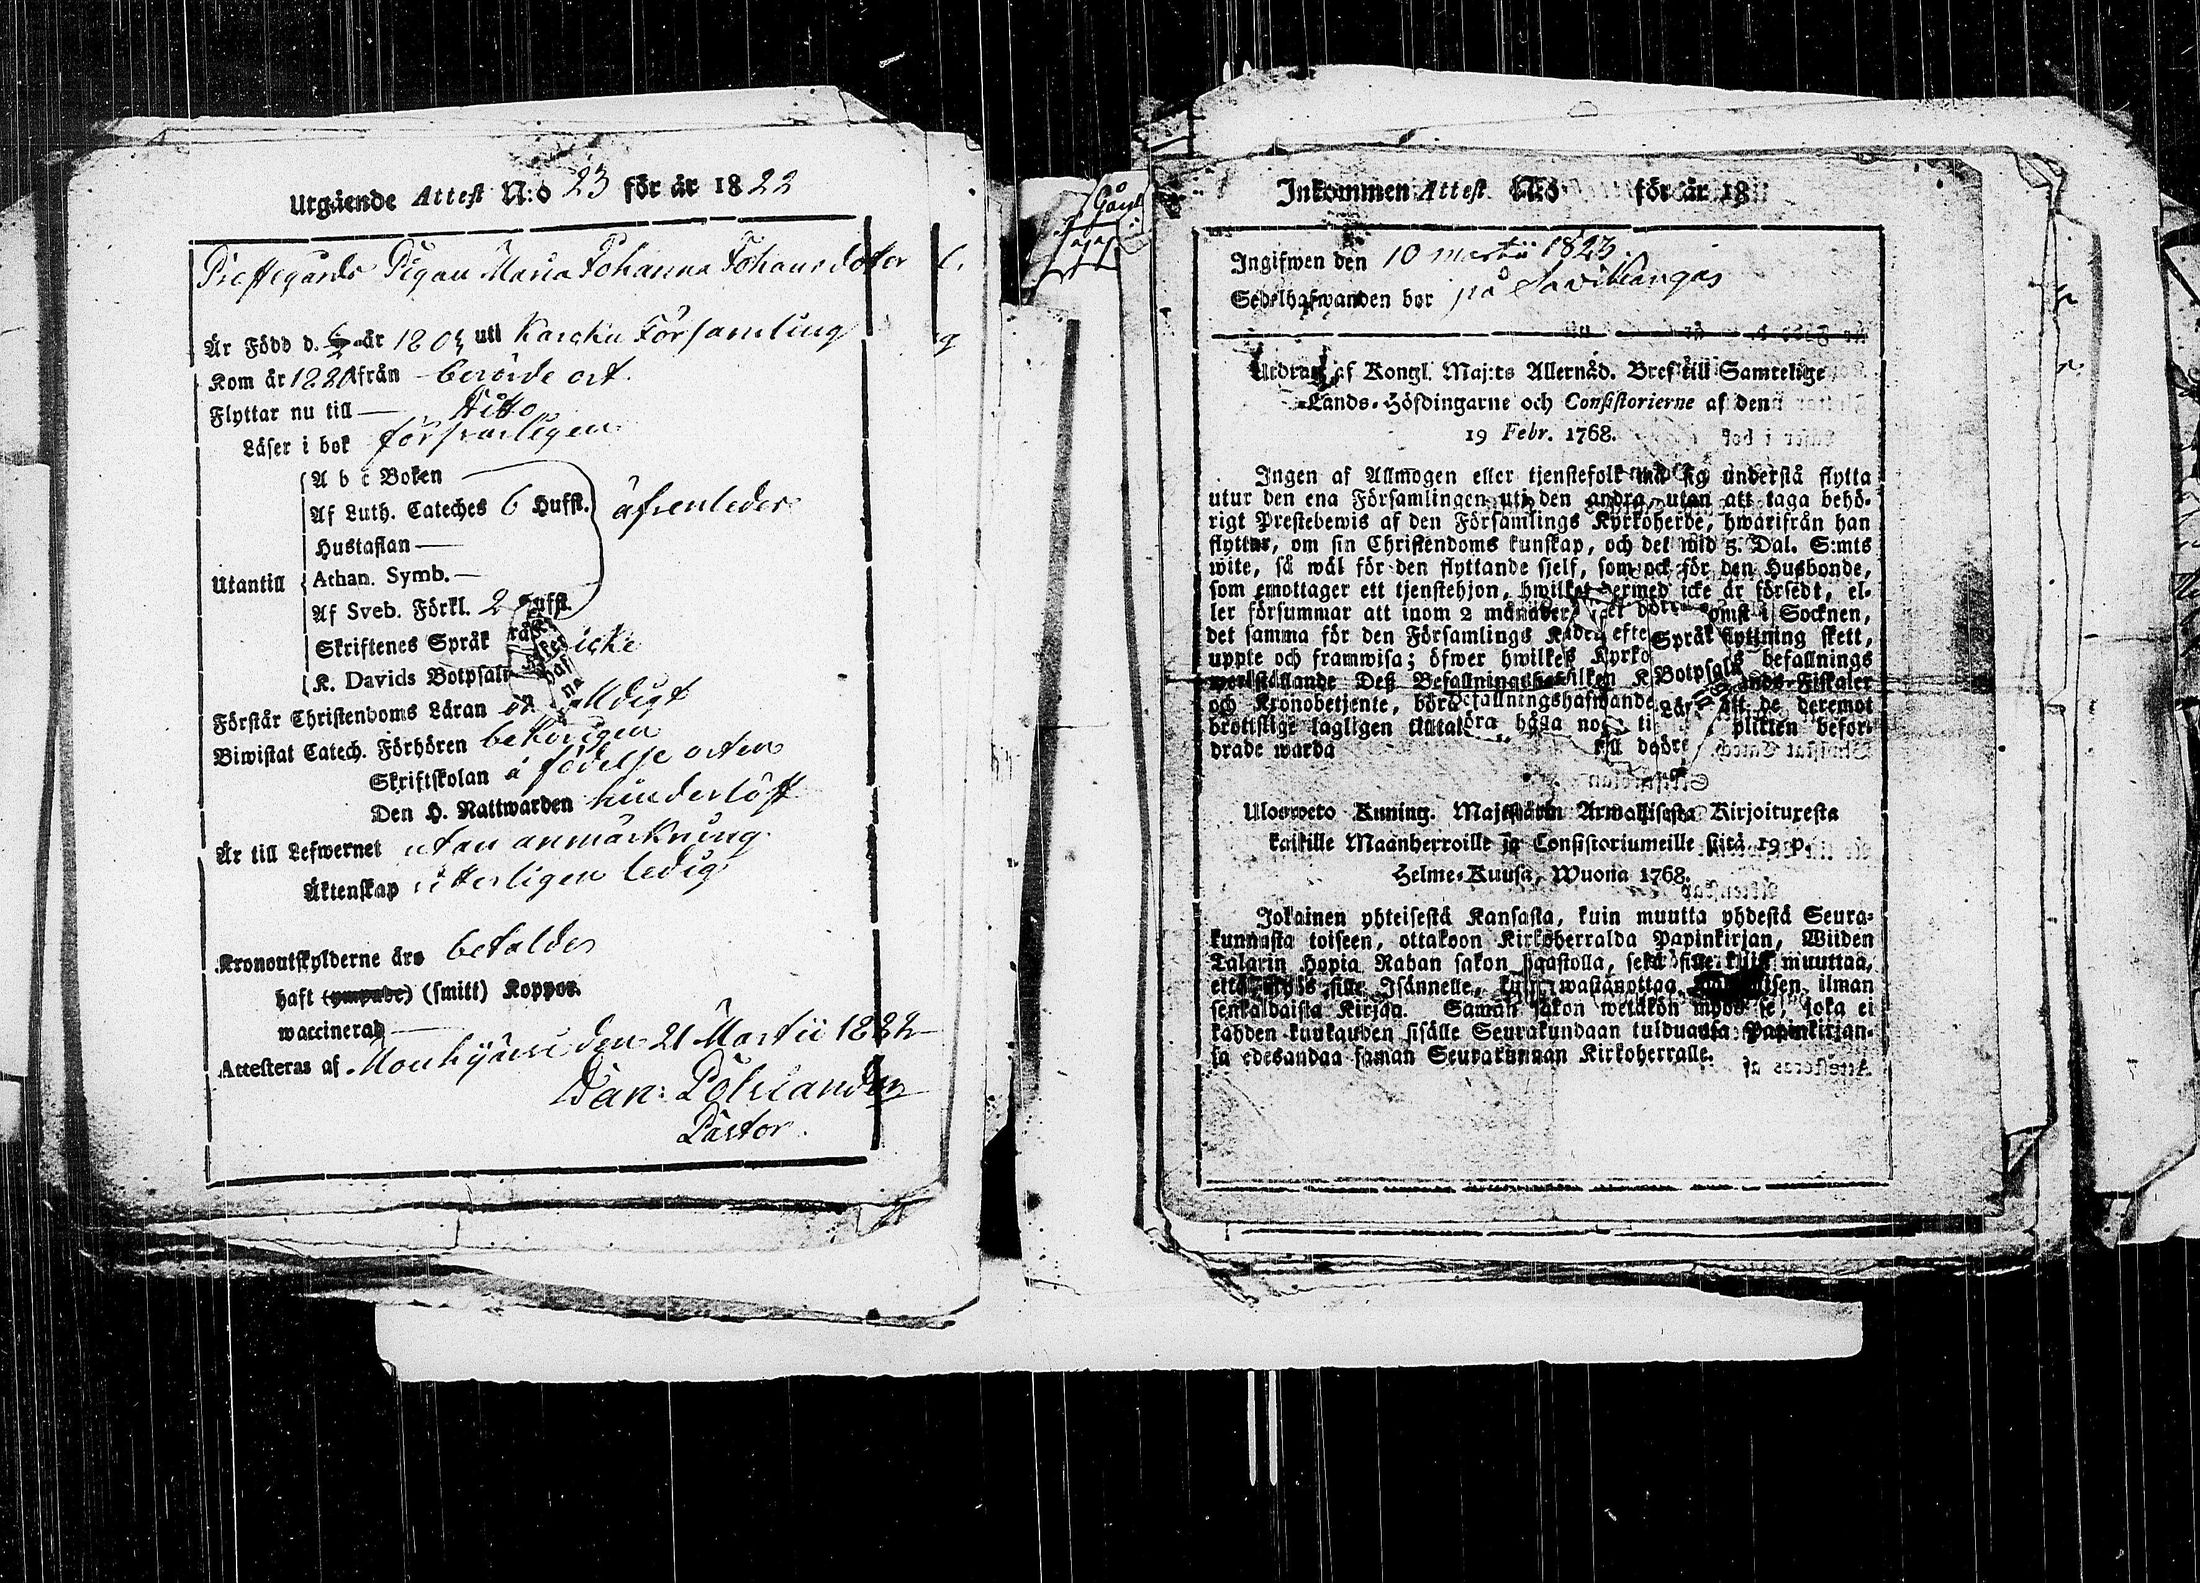 Utgående Attest N:o 23 för år 1822
Prestegårds Pigan Maria Johanna Johansdotter
Är Född d. år 180 uti Karckú Församling
Kom år 1820 ifrån berörde ort.
Flyttar nu till — ditto
Läser i bok försvarligen
Utantill
A b c Boken
Af Luth. Cateches 6 Hufst. äfvenledes
Hustaflan —
Athan. Symb. —
Af Sveb. Förkl. 2 Hufst.
Skriftenes Språk icke
K. Davids Botpsalm
Förstår Christendoms Läran
Biwistat Catech. Förhören behörigen
Skriftskolan å födelse orten
Den H. Nattwarden hinderlöst
Är till Lefwernet utan anmärkning
Äktenskap ytterligen ledig
Kronoutskylderne äro betalde
haft (ympade) (smitt) Koppor.
waccinerad —
Attesteras af Mouhijärvi den 21 Martii 1822
Dan: Polviander
Pastor.
Inkommen Attest N:o för år 18
Ingifwen den 10 martii 1823.
Sedelhafwanden bor på Savikangas
Utdrag af Kongl. Maj:ts Allernåd. Bref till Samtelige
Lands-Höfdingarne och Consistorierne af den
19 Febr. 1768.
Ingen af Allmogen eller tjenstefolk må sig understå flytta
utur den ena Församlingen uti den andra, utan att taga behö-
rigt Prestebewis af den Församlings Kyrkoherde, hwarifrån han
flyttar, om sin Christendoms kunskap, och det wid 5. Dal. S:mts
wite, så wäl för den flyttande sjelf, som ock för den Husbonde,
som emottager ett tjenstehjon, hwilket dermed icke är försedt, el-
ler försummar att inom 2 månader Socknen,
det samma för den Församlings flyttning skett,
uppte och framwisa; öfwer hwilket Kyrko befallnings
werkställande Deß Befallningshafwande Fiskaler
och Kronobetjente, böra de deremot
brottslige lagligen tilltal plikten befor-
drade warda
Uloswето Kuning. Majestätin Armollisesta Kirjoituxesta
kaikille Maanherroille ja Consistoriumeille siitä 19 p.
Helme-Kuusa, Wuona 1768.
Jokainen yhteisestä Kansasta, kuin muutta yhdestä Seura-
kunnasta toiseen, ottakoon Kirkoherralda Papinkirjan, Wiiden
Talarin Hopia Rahan sakon haastolla, sekä sille kuin muuttaa,
että myös sille Isännelle, kuin wastanottaa ilman
senkaldaista Kirjaa. Saman sakon wetäkön myös se, joka ei
kahden kuukauden sisälle Seurakundaan tulduansa Papinkirjan-
sa edesandaa saman Seurakunnan Kirkoherralle.